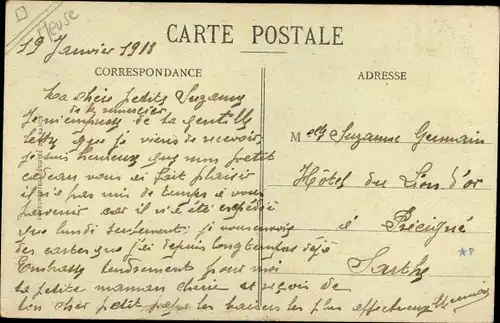 Meuse
19 Janvier 1918
CARTE POSTALE
CORRESPONDANCE
Ma chère petite Suzanne
Je m'empresse de te remercier de ta gentille
lettre que je viens de recevoir,
je suis heureux que mon petit
cadeau vous ai fait plaisir
il n'a pas mis de temps à vous
parvenir car il n'a été expédié
que lundi seulement. je vous envoie
des cartes que j'ai depuis longtemps déjà
Embrasse tendrement pour moi
ta petite maman chérie et reçois de
ton cher petit papa les baisers les plus affectueux
ADRESSE
Melle Suzanne Germain
Hôtel du Lion d'or
à Précigné
Sarthe
*P